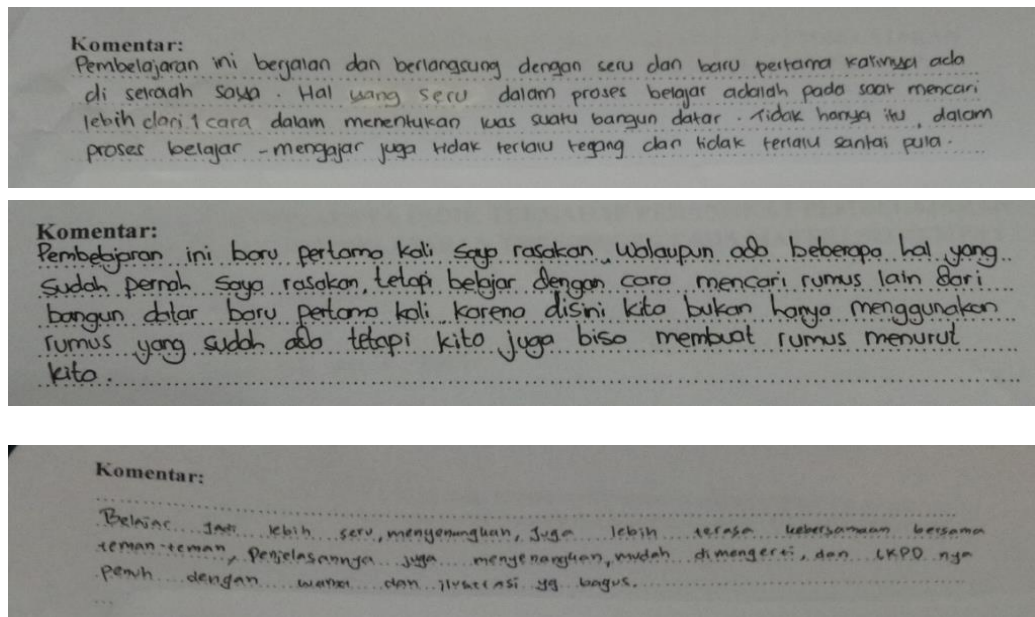 Komentar:
Pembelajaran ini berjalan dan berlangsung dengan seru dan baru pertama kalinya ada
di sekolah saya. Hal yang seru dalam proses belajar adalah pada saat mencari
lebih dari 1 cara dalam menentukan luas suatu bangun datar. Tidak hanya itu, dalam
proses belajar-mengajar juga tidak terlalu tegang dan tidak terlalu santai pula.
Komentar:
Pembelajaran ini baru pertama kali saya rasakan, walaupun ada beberapa hal yang
sudah pernah saya rasakan, tetapi belajar dengan cara mencari rumus lain dari
bangun datar baru pertama kali karena disini kita bukan hanya menggunakan
rumus yang sudah ada tetapi kita juga bisa membuat rumus menurut
kita.
Komentar:
Belajar jadi lebih seru, menyenangkan, juga lebih terasa kebersamaan bersama
teman-teman, Penjelasannya juga menyenangkan, mudah dimengerti, dan LKPD nya
penuh dengan warna dan ilustrasi yg bagus.